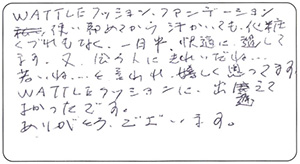 WATTLEクッション.ファンデーション
使い初めてから汗かいても、化粧
くずれもなく、一日中、快適に過して
ます。又、会う人にきれいだね…
若いね…と言われ嬉しく思ってます。
WATTLEクッションに、出逢えて
よかったです。
ありがとうございます。